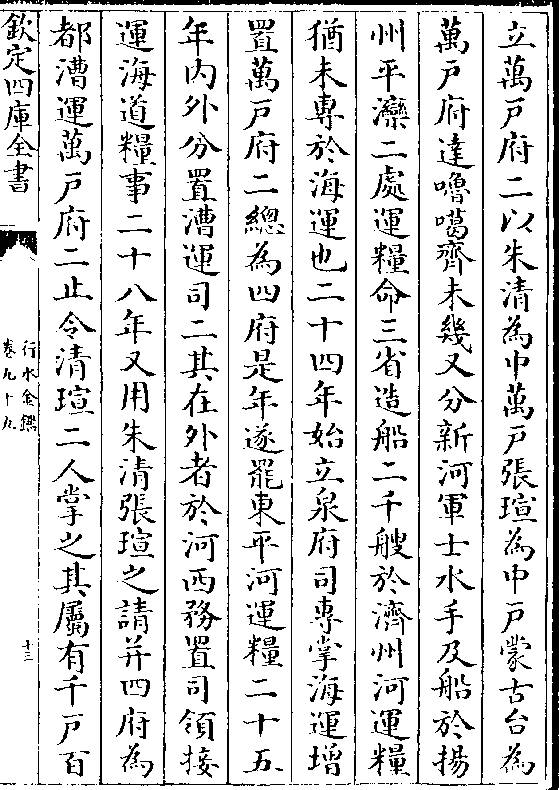 立萬戸府二以朱清為中萬戸張瑄為中戸蒙古台為
萬戸府達嚕噶齊未幾又分新河軍士水手及船於揚
州平灤二處運糧命三省造船二千艘於濟州河運糧
猶未專於海運也二十四年始立泉府司專掌海運增
置萬戸府二總為四府是年遂罷東平河運糧二十五
年内外分置漕運司二其在外者於河西務置司領接
運海道糧事二十八年又用朱清張瑄之請并四府為
都漕運萬戸府二止令清瑄二人掌之其屬有千戸百
欽定四庫全書
行水金鑑
卷九十九
十三